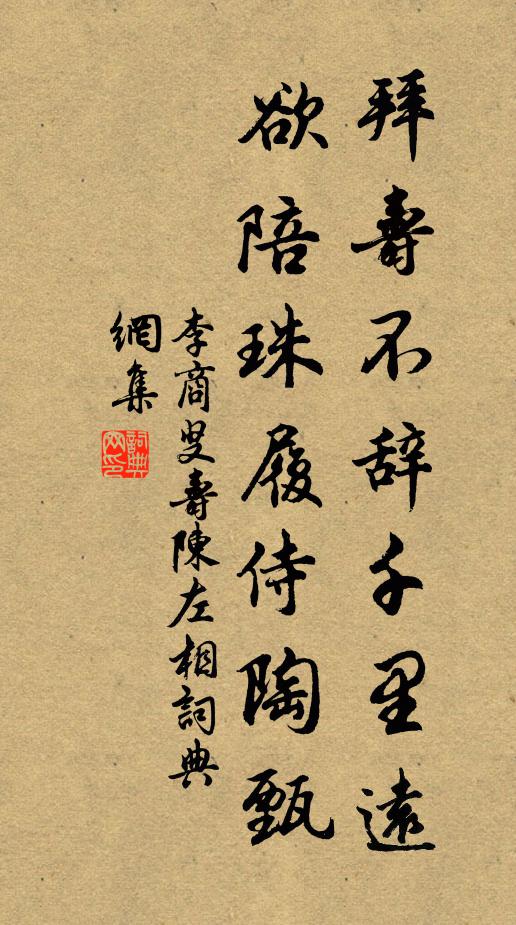 拜壽不辞千里遠
欲陪珠履侍陶甄
李商叟壽陳左相詞典
網集
詞典
网印